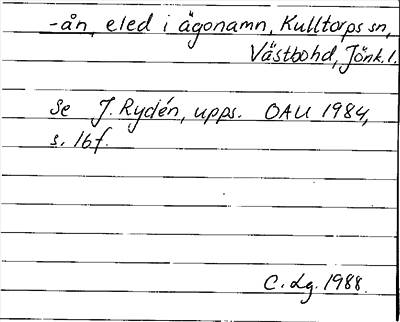 -ån, eled i ägonamn, Kulltorps sn,
Västbohd, Jönk.l.
Se J. Rydén, upps. OAU 1984,
s. 16f.
C. Lg. 1988.